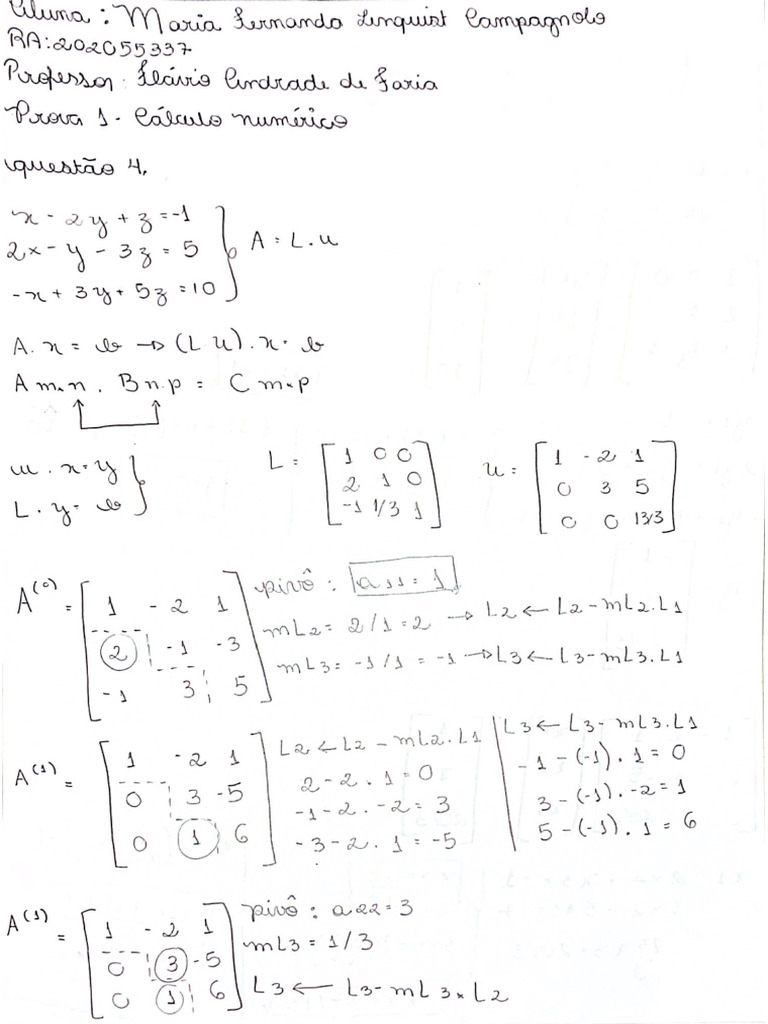 Aluna: Maria Fernanda Lenquist Campagnolo
RA:202055337
Professor: Flávio Andrade de Faria
Prova 1 - Cálculo numérico
questão 4.
x - 2y + z = -1
2x - y - 3z = 5
-x + 3y + 5z = 10
A = L.u
A. x = b → (L u). x = b
A m.n . B n.p = C m.p
u . x = y
L . y = b
L = [1 0 0
2 1 0
-1 1/3 1]
u = [1 -2 1
0 3 5
0 0 13/3]
A(0) = [1 -2 1
2 -1 -3
-1 3 5]
pivô: a11 = 1
mL2 = 2/1 = 2 → L2 ← L2 - mL2.L1
mL3 = -1/1 = -1 → L3 ← L3 - mL3.L1
A(1) = [1 -2 1
0 3 -5
0 1 6]
L2 ← L2 - mL2.L1
2 - 2 . 1 = 0
-1 - 2 . -2 = 3
-3 - 2 . 1 = -5
L3 ← L3 - mL3.L1
-1 - (-1) . 1 = 0
3 - (-1) . -2 = 1
5 - (-1) . 1 = 6
A(1) = [1 -2 1
0 3 -5
0 1 6]
pivô: a22 = 3
mL3 = 1/3
L3 ← L3 - mL3 x L2